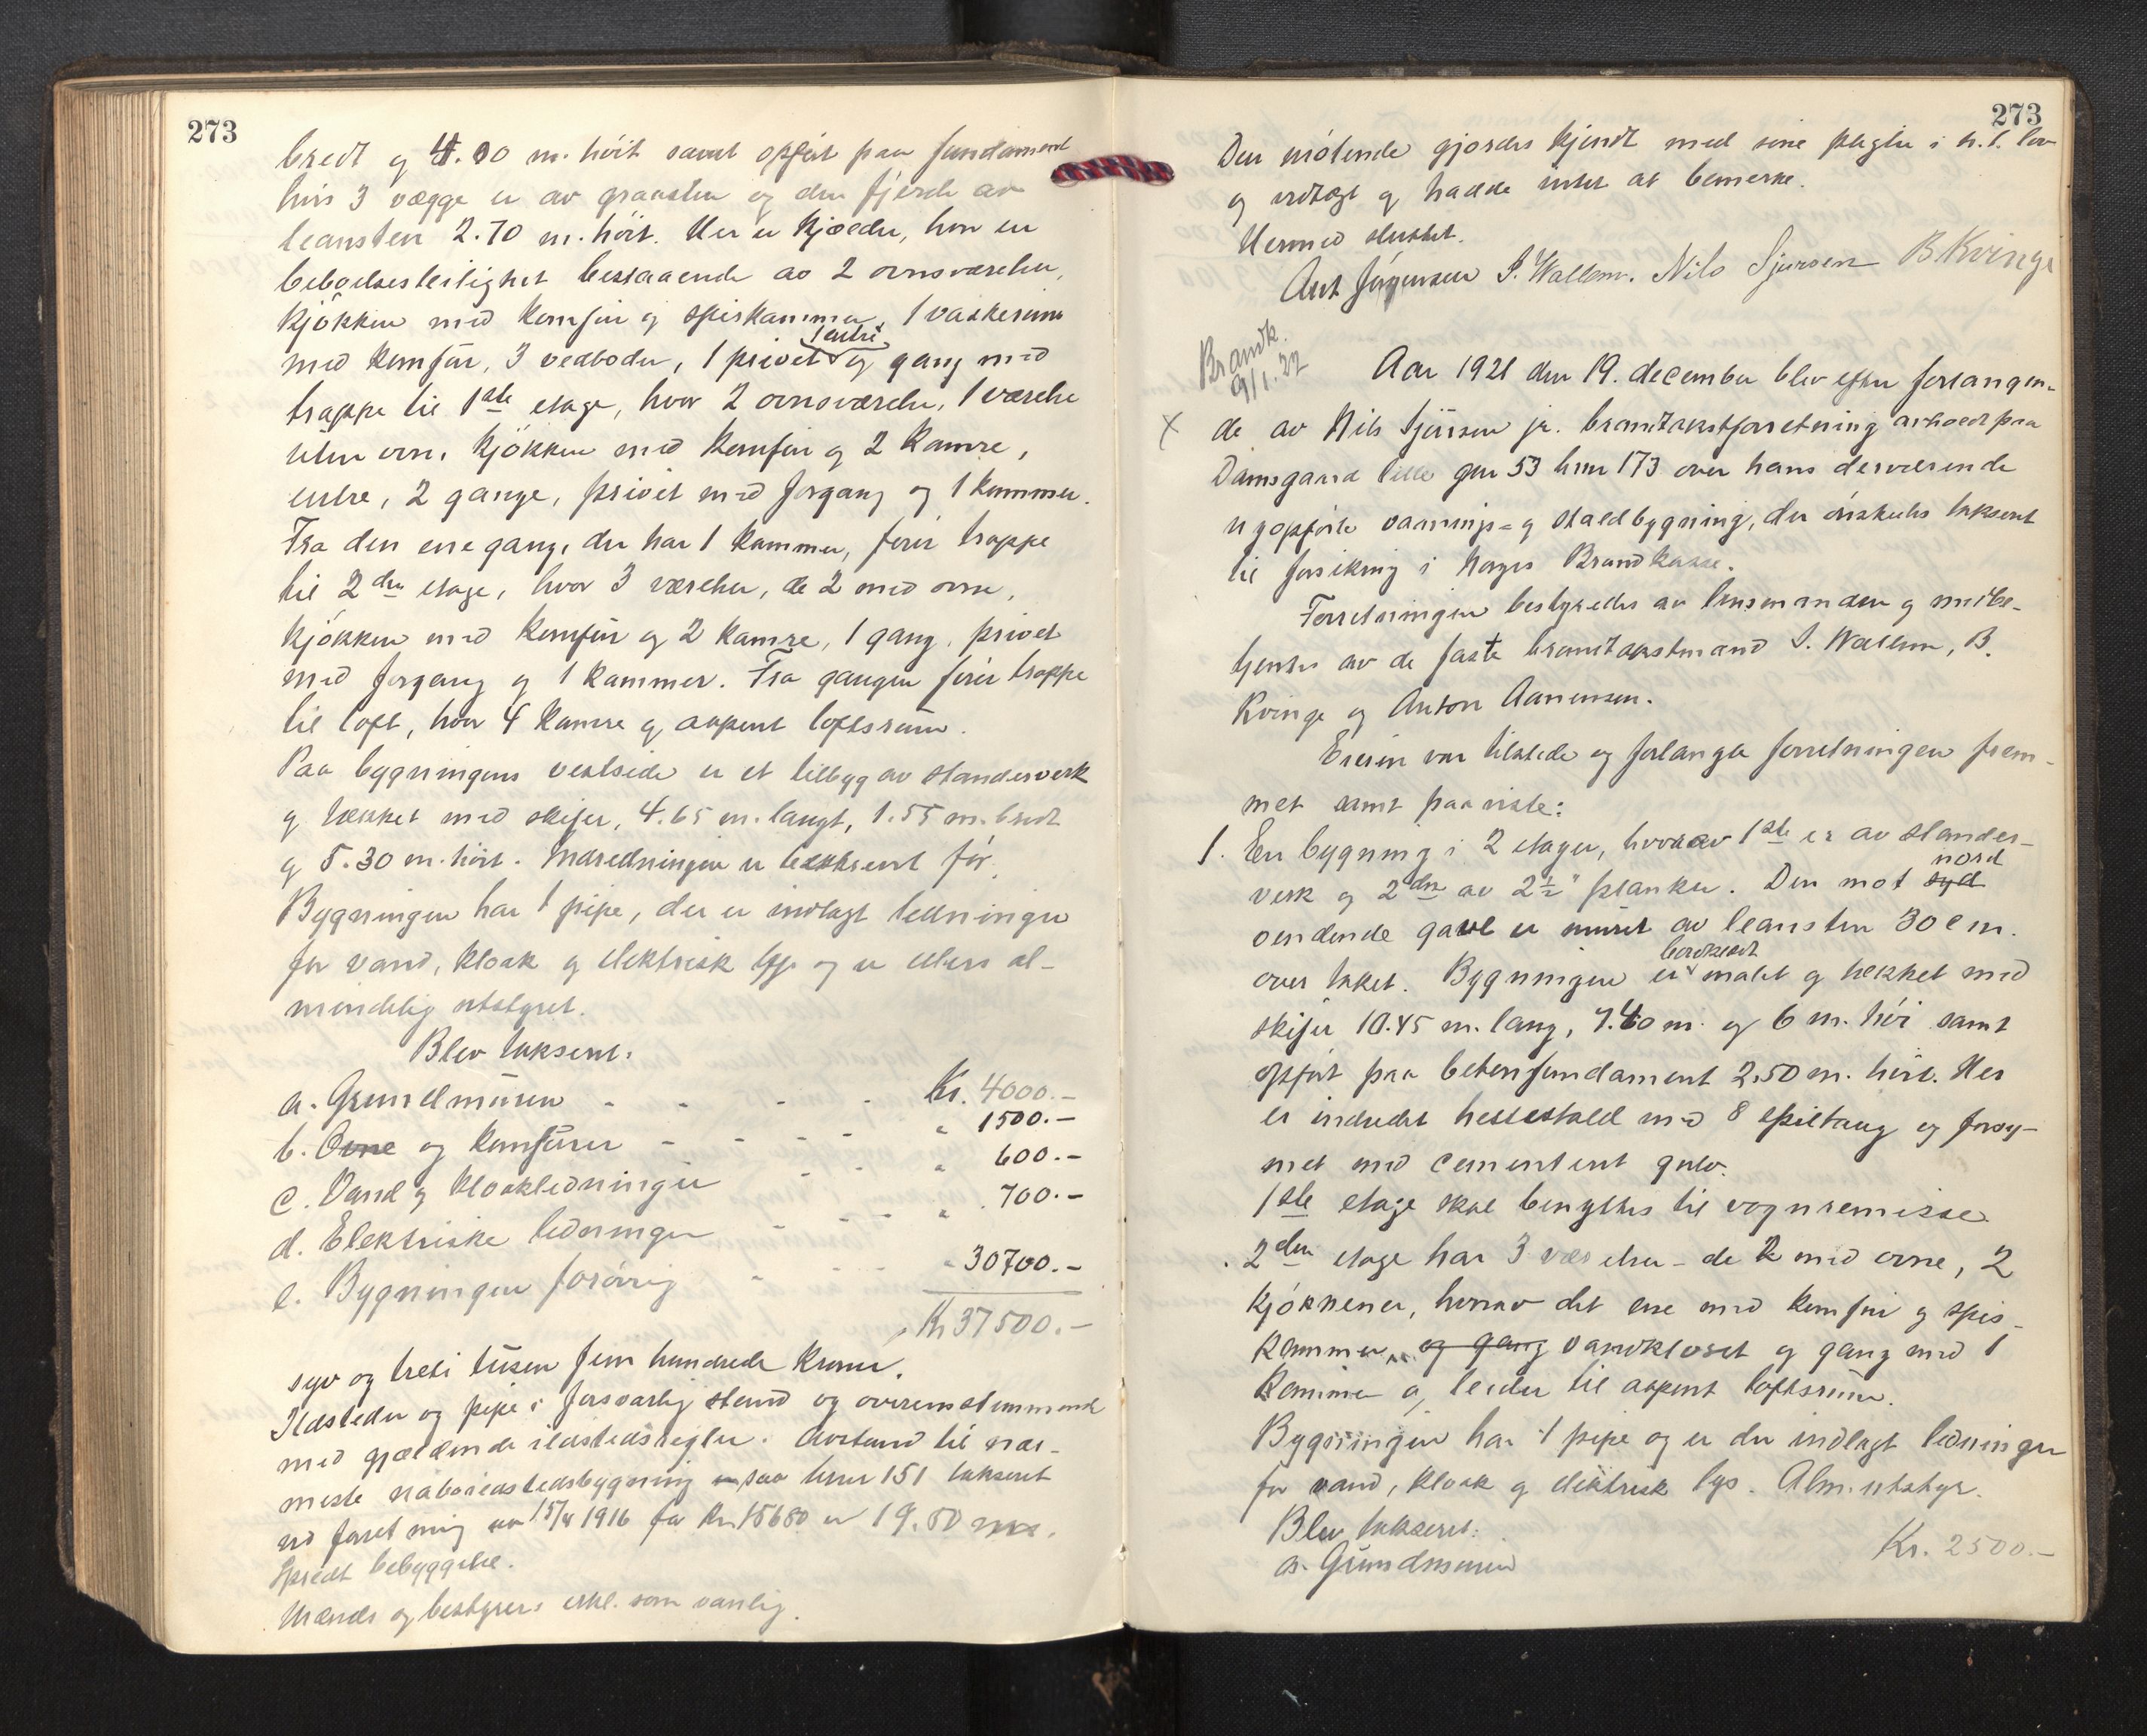 273
bredt og 4.00 m. höit samt opfört paa fundament
hvis 3 vægge er av graasten og den fjerde av
leansten 2.70 m. höit. Her er kjælder, hvor en
beboelsesleilighet bestaaende av 2 ovnsværelser,
kjökken med komfur og spiskammer, 1 vaskerum
1 entré
med komfur, 3 vedboder, 1 privet og gang med
trappe til 1ste etage, hvor 2 ovnsværelser, 1 værelse
uten ovn, kjökken med komfur og 2 kamre,
entre, 2 gange, privet med forgang og 1 kammer.
Fra den ene gang, der har 1 kammer, förer trappe
til 2den etage, hvor 3 værelser, de 2 med ovne,
kjökken med komfur og 2 kamre, 1 gang, privet
med forgang og 1 kammer. Fra gangen förer trappe
til loft, hvor 4 kamre og aapent loftsrum.
Paa bygningens vestside er et tilbyg av standerverk
og tækket med skifer, 4.65 m. langt, 1.55 m. bredt
og 5.30 m. höit. Indredningen er beskrevet för.
Bygningen har 1 pipe, der er indlagt ledninger
for vand, kloak og elektrisk lys og er ellers al-
mindelig utstyret.
Blev taksert:
a. Grundmuren - - - - Kr. 4000.-
b. Ovne og komfurer - - - - " 1500.-
c. Vand og kloakledninger - - - " 600.-
d. Elektriske ledninger - - - " 700.-
e. Bygningen forövrig - - - " 30700.-
Kr 37500.-
syv og treti tusen fem hundrede kroner.
Ildsteder og pipe i forsvarlig stand og overensstemmende
med gjældende ildstedsregler. Avstand til nær-
meste naboildstedsbygning paa bnr 151 taksert
ved forretning av 15/4 1916 for Kr. 15680 er 19.50 m.
Spredt bebyggelse.
Mænds og bestyrers erkl. som vanlig.
273
Den mötende gjordes kjendt med sine pligter i h.t. lov
og vedtægt og hadde intet at bemerke.
Hermed sluttet.
Ant Jörgensen S. Wallem. Nils Sjursen B Kvinge
Brandk.
9/1. 22
Aar 1921 den 19. december blev efter forlangen-
x
de av Nils Sjursen jr. brandtakstforretning avholdt paa
Damsgaard lille gnr 53 bnr 173 over hans derværende
nyopförte vaanings- og staldbygning, der önskedes taksert
til forsikring i Norges Brandkasse.
Forretningen bestyredes av lensmanden og medbe-
tjentes av de faste brandtakstmænd S. Wallem, B.
Kvinge og Anton Aanensen.
Eieren var tilstede og forlangte forretningen frem-
met samt paaviste:
1. En bygning i 2 etager, hvorav 1ste er av stander-
nord
verk og 2den av 2½" planker. Den mot syd
vendende gavl er muret av leansten 30 cm.
bordklædt
over taket. Bygningen er malet og tækket med
skifer 10.45 m. lang, 7.40 m. og 6 m. höi samt
opfört paa betonfundament 2.50 m. höit. Her
er indredet hestestald med 8 spiltaug og forsy-
net med cementert gulv.
1ste etage skal benyttes til vognremisse
2den etage har 3 værelser - de 2 med ovne, 2
kjökkener, hvorav det ene med komfur og spis-
kammer, og gang vandkloset og gang med 1
kammer og leider til aapent loftsrum.
Bygningen har 1 pipe og er der indlagt ledninger
for vand, kloak og elektrisk lys. Alm. utstyr.
Blev taksert:
a. Grundmuren Kr. 2500.-